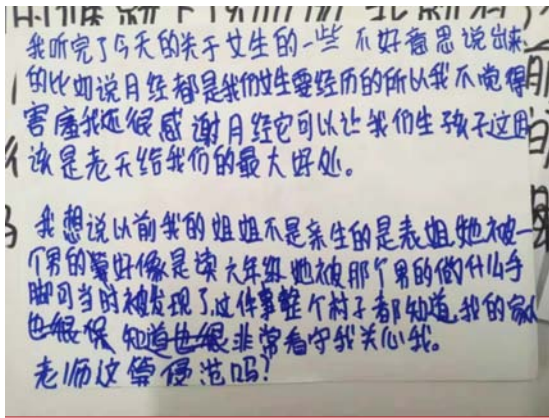 我听完了今天的关于女生的一些 不好意思说出来
的比如说月经都是我们女生要经历的所以我不觉得
害羞我还很感谢月经它可以让我们生孩子这因
该是老天给我们的最大好处。
我想说以前我的姐姐不是亲生的是表姐,她被一
个男的好像是读六年级她被那个男的做什么手
脚可当时被发现了这件事整个村子都知道,我的家人
也很保 知道也很非常看守我关心我。
老师这算侵范吗?